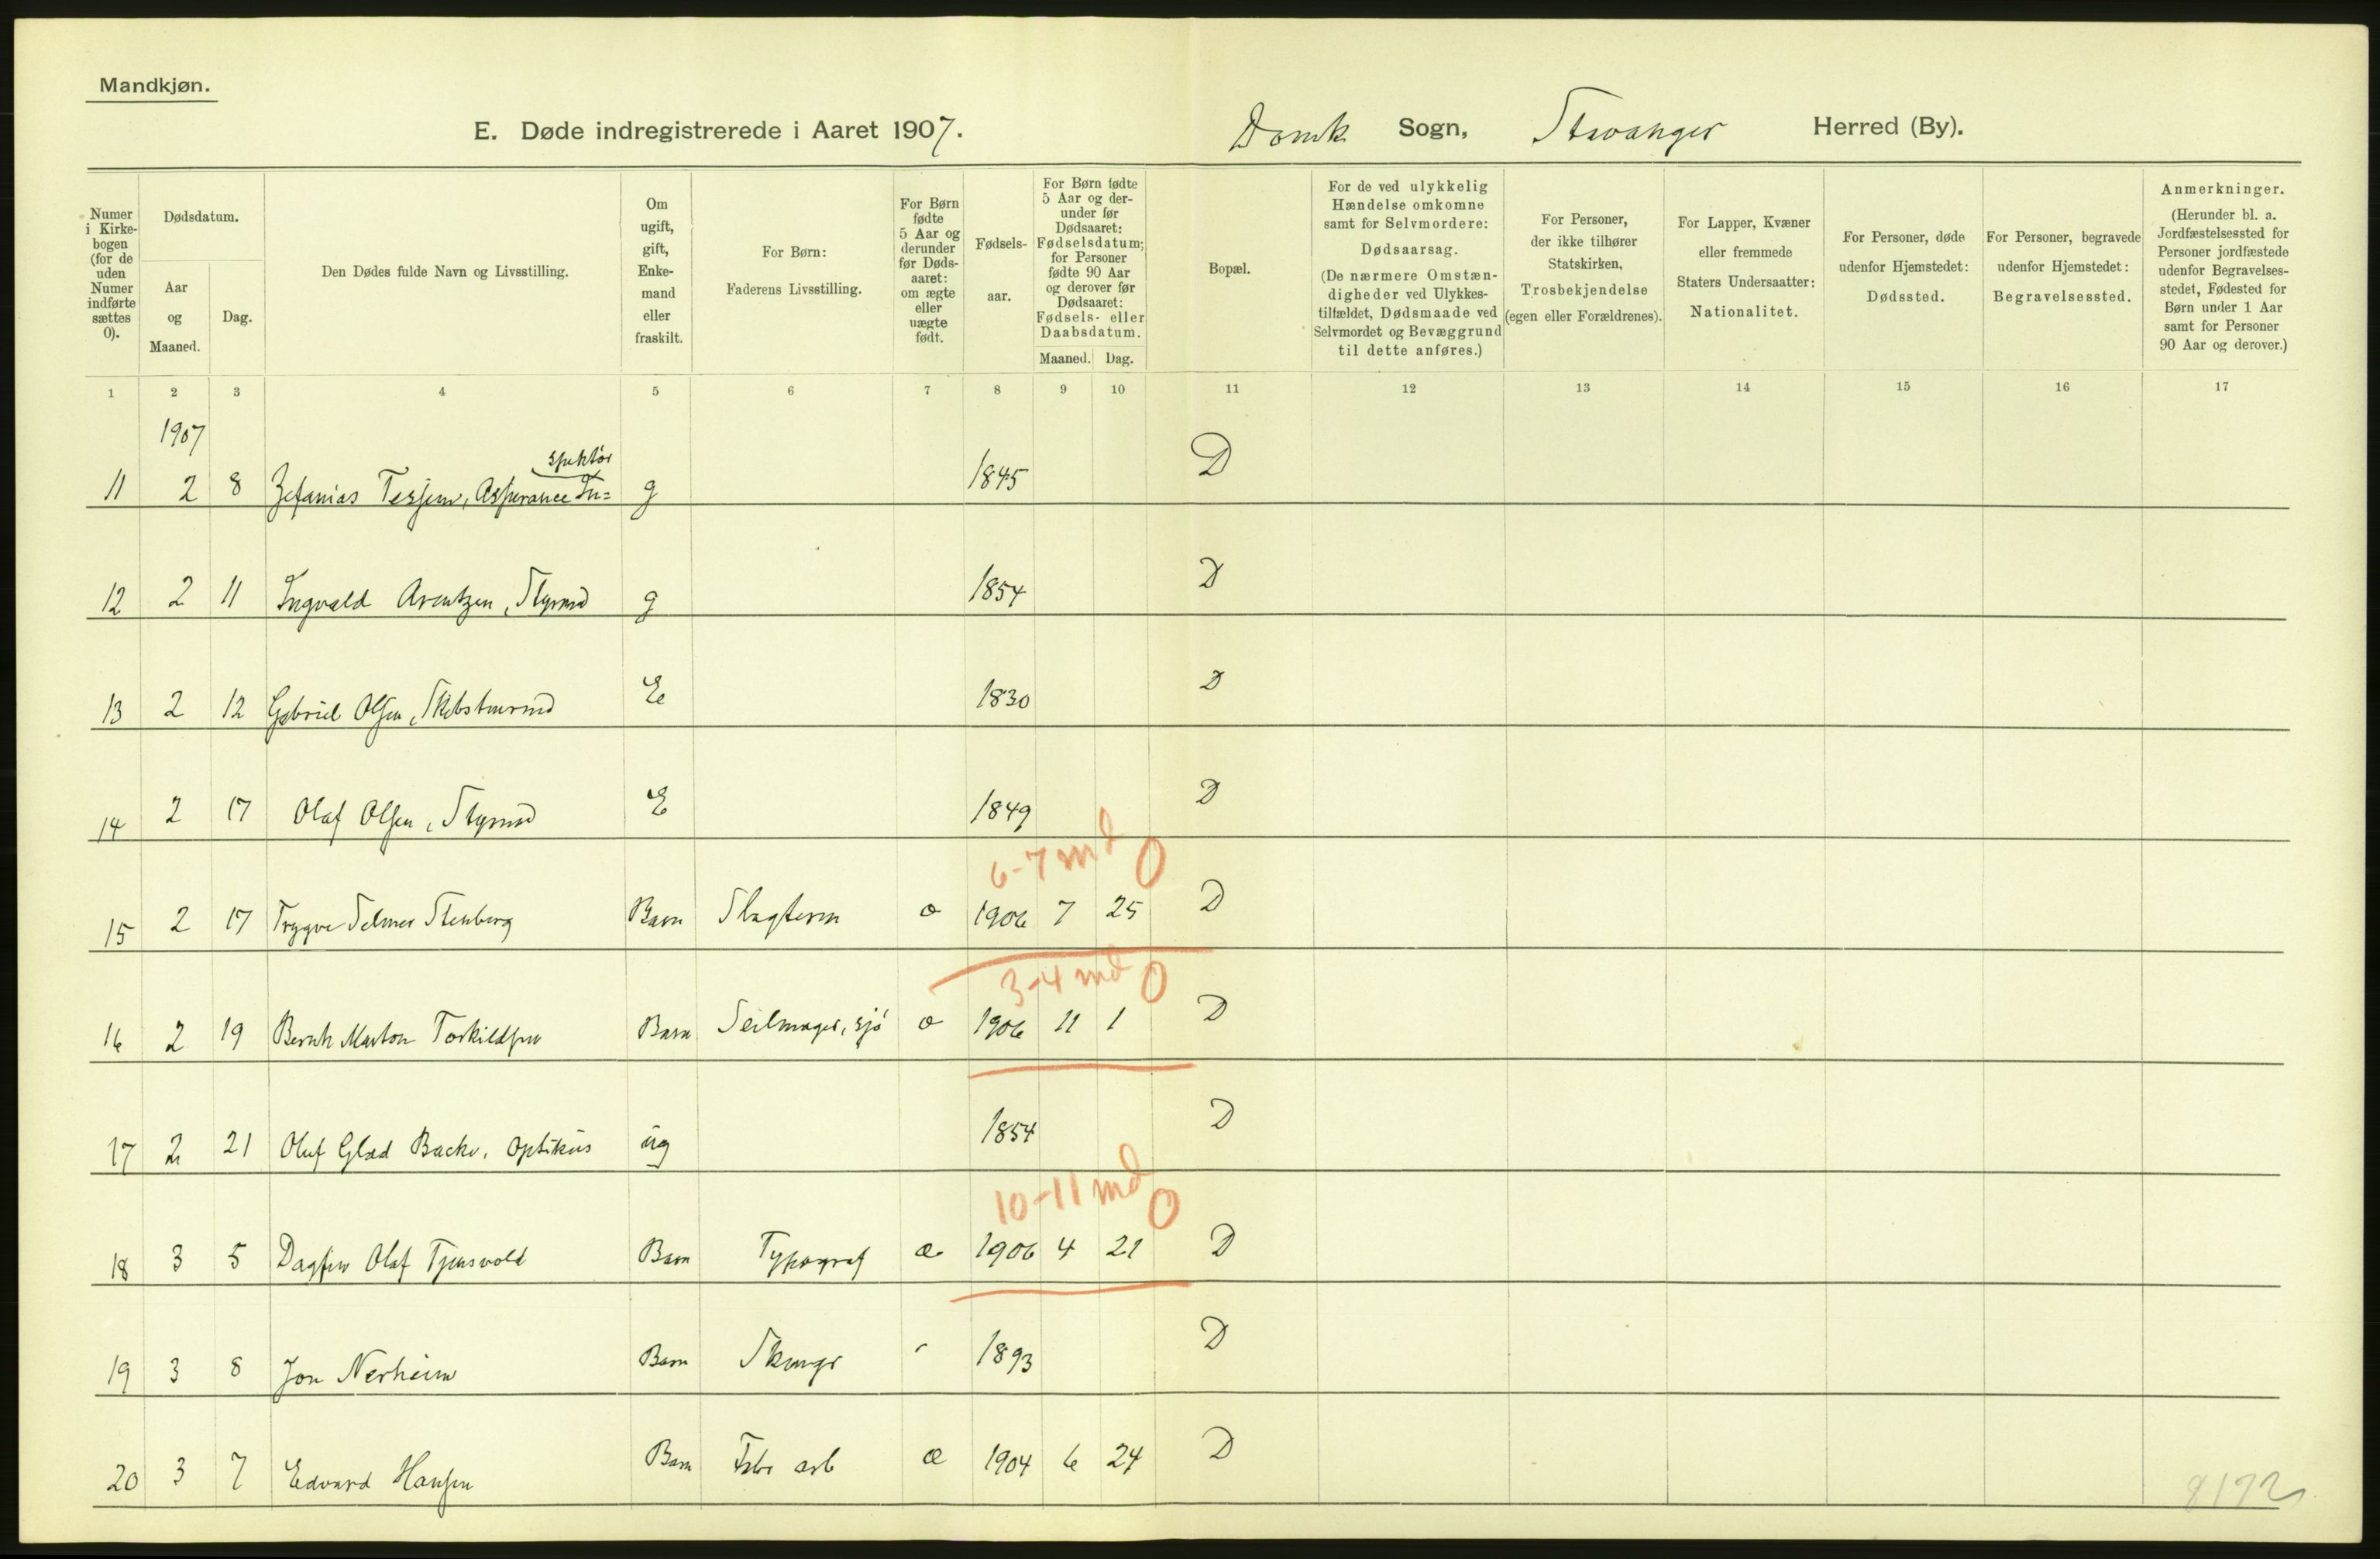 Mandkjøn.
E. Døde indregistrerede i Aaret 1907. Domk Sogn, Stavanger Herred (By).
Numer i Kirkebogen (for de uden Numer indførte sættes 0).
Dødsdatum.
Aar og Maaned.
Dag.
Den Dødes fulde Navn og Livsstilling.
Om ugift, gift, Enkemand eller fraskilt.
For Børn: Faderens Livsstilling.
For Børn fødte 5 Aar og derunder før Dødsaaret: om ægte eller uægte født.
Fødselsaar.
For Børn fødte 5 Aar og derunder før Dødsaaret: Fødselsdatum; for Personer fødte 90 Aar og derover før Dødsaaret: Fødsels- eller Daabsdatum.
Maaned. Dag.
Bopæl.
For de ved ulykkelig Hændelse omkomne samt for Selvmordere: Dødsaarsag. (De nærmere Omstændigheder ved Ulykkestilfældet, Dødsmaade ved Selvmordet og Bevæggrund til dette anføres.)
For Personer, der ikke tilhører Statskirken, Trosbekjendelse (egen eller Forældrenes).
For Lapper, Kvæner eller fremmede Staters Undersaatter: Nationalitet.
For Personer, døde udenfor Hjemstedet: Dødssted.
For Personer, begravede udenfor Hjemstedet: Begravelsessted.
Anmerkninger. (Herunder bl. a. Jordfæstelsessted for Personer jordfæstede udenfor Begravelsesstedet, Fødested for Børn under 1 Aar samt for Personer 90 Aar og derover.)
1 2 3 4 5 6 7 8 9 10 11 12 13 14 15 16 17
1907
spektør
11 2 8 Zefanias Tesjem, Assurance In= g 1845 D
12 2 11 Ingvald Arentzen, Styrmd g 1854 D
13 2 12 Gabriel Olsen, E 1830 D
14 2 17 Olaf Olsen, Styrmd E 1849 D
6-7 md 0
15 2 17 Trygve Selmer Stenberg Barn Slagtersv æ 1906 7 25 D
3-4 md 0
16 2 19 Bernh Marton Torkildsen Barn Seilmager, sjø æ 1906 11 1 D
17 2 21 Oluf Glad Backe, Optikus ug 1854 D
10-11 md 0
18 3 5 Dagfin Olaf Tjensvold Barn Typograf æ 1906 4 21 D
19 3 8 Jon Nerheim Barn 1893 D
20 3 7 Edvard Hansen Barn Fabr arb æ 1904 6 24 D
8172